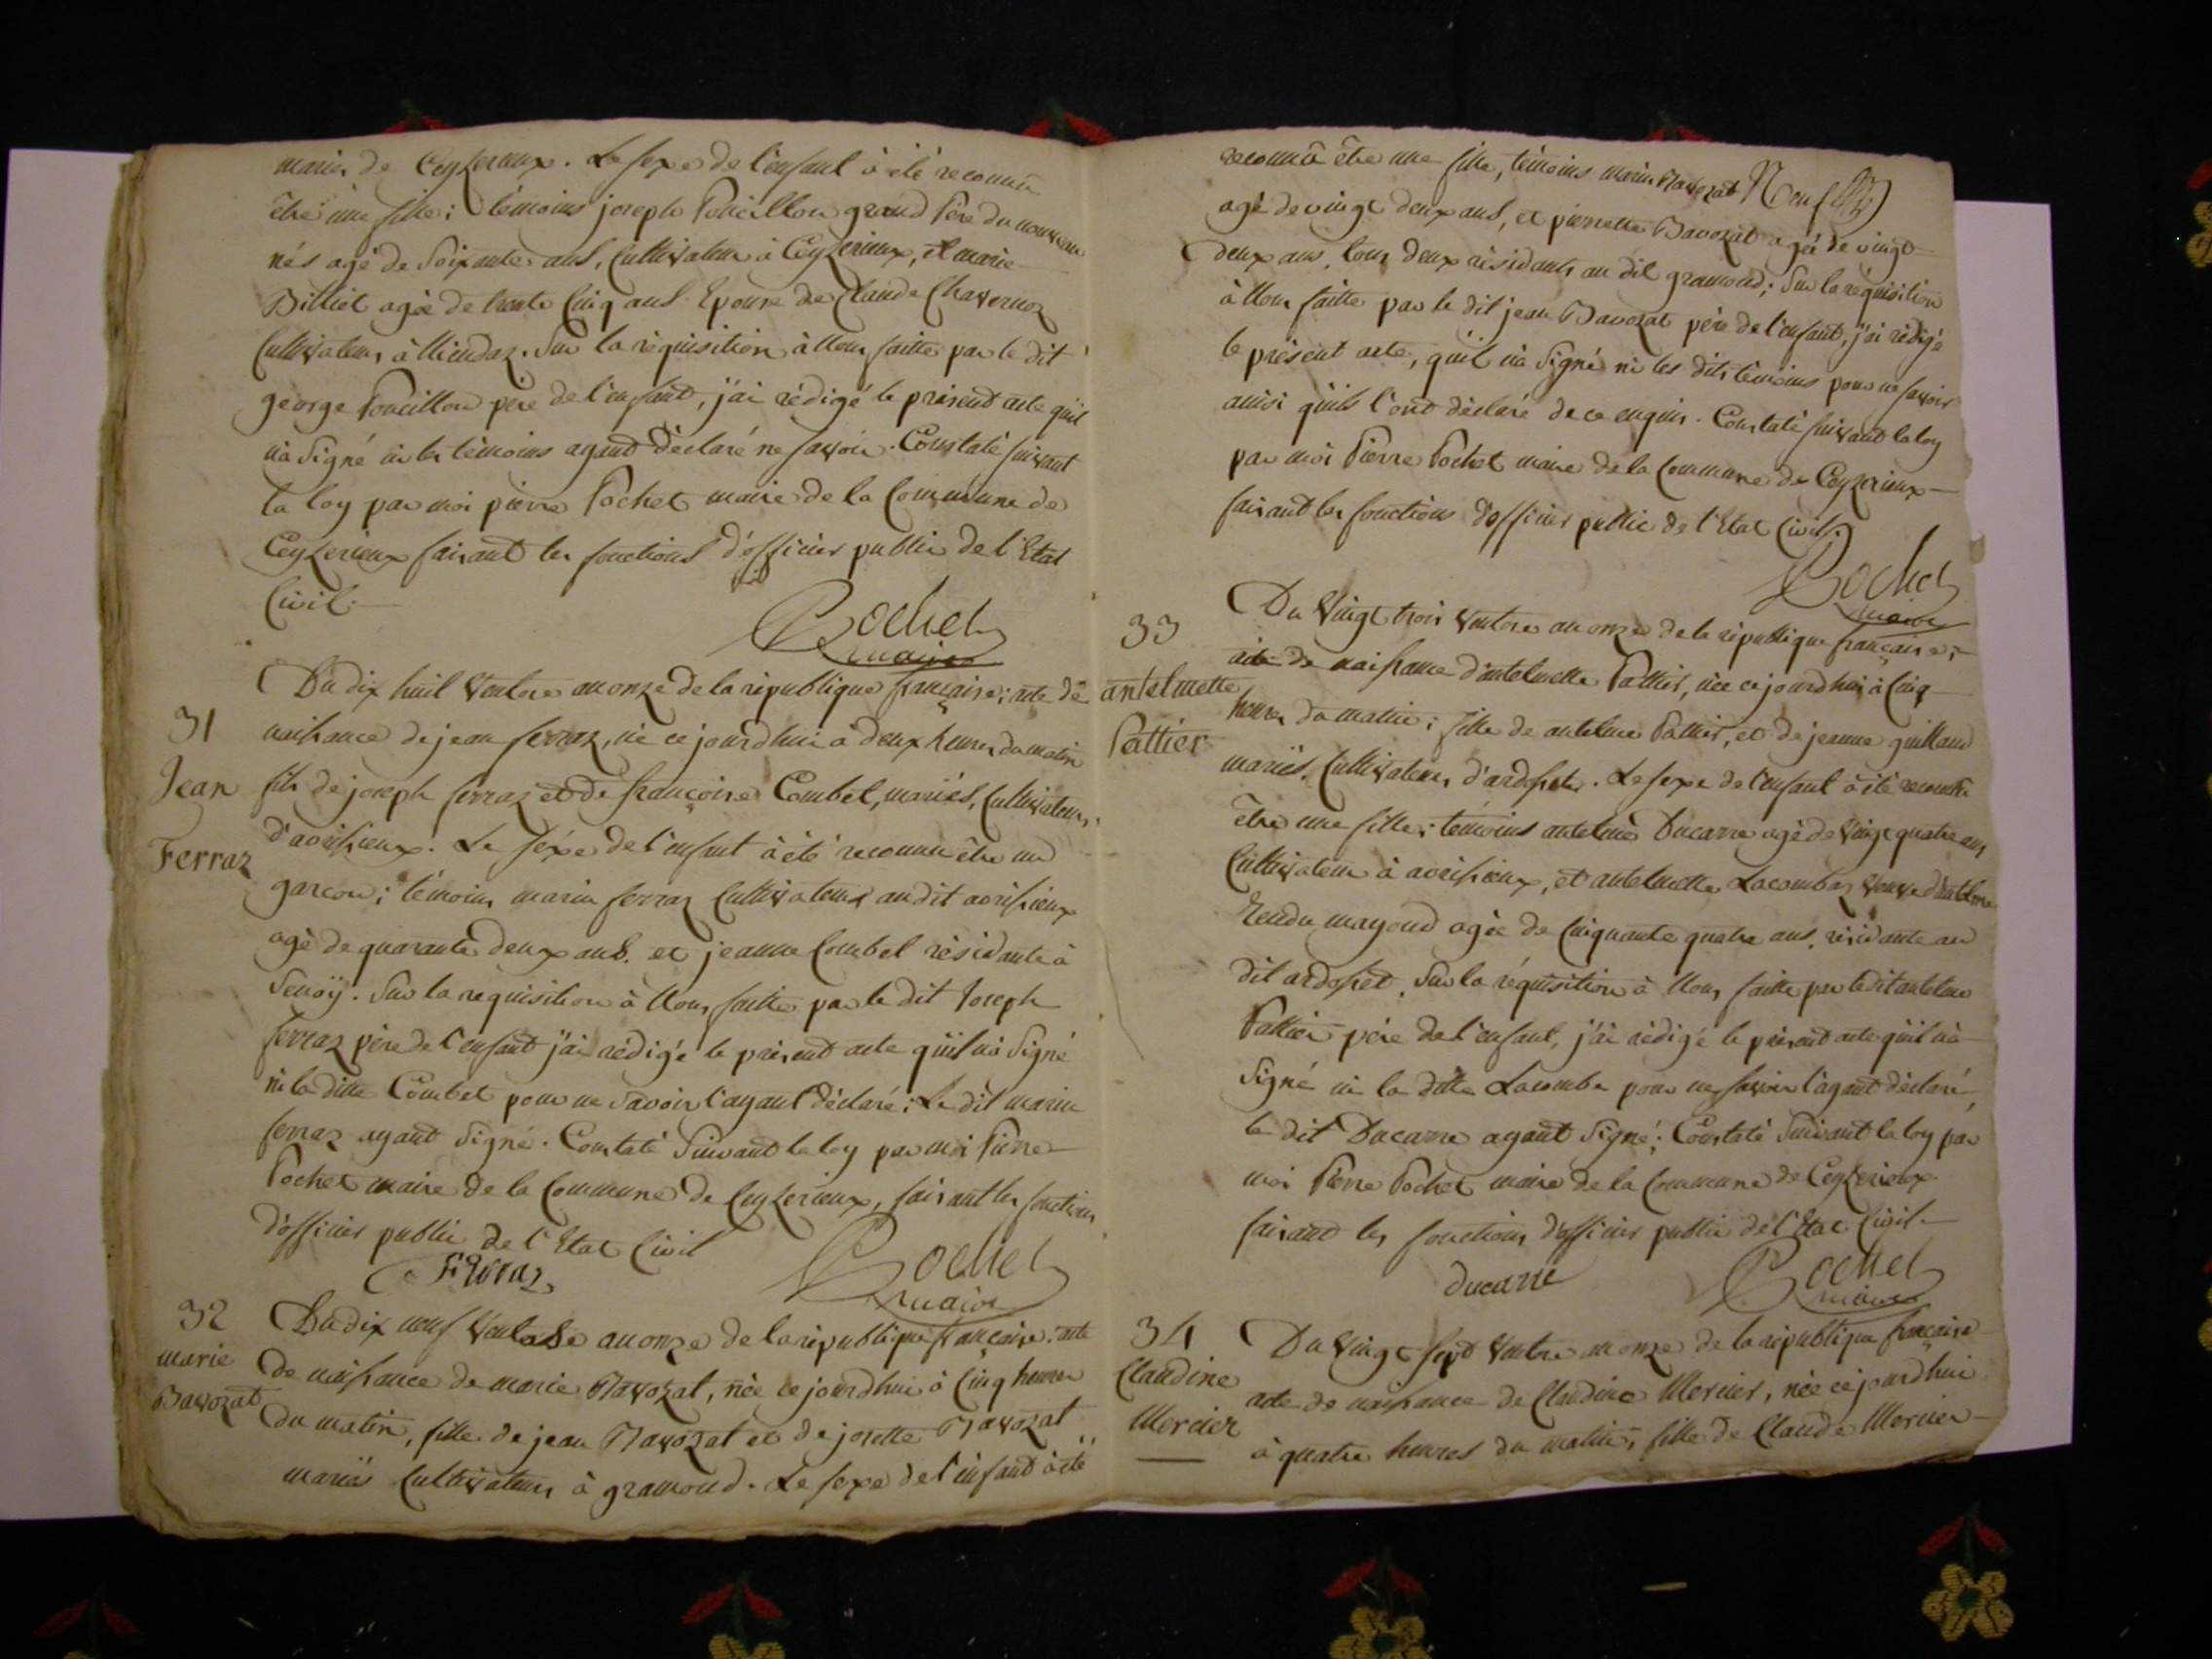 mariés de Ceyzerieux. Le sexe de l'enfant à été reconnu
être une fille; témoins joseph Poncillon grand Père du nouveau
nés agé de Soixante ans, Cultivateur à Ceyzerieux, et marie
Billiet agée de trente Cinq ans Epouse de Claude Chavornoz
Cultivateur, à . Sur la réquisition à Nous faitte par le dit
george Poncillon père de l'enfant, j'ai rédigé le présent acte qu'il
n'à Signé ni les témoins ayant Déclaré ne savoir. Constaté suivant
la loy par moi pierre Pochet maire de la Commune de
Ceyzerieux faisant les fonctions d'officier public de l'Etat
Civil.
Pochet
maire
31
Jean
Ferraz
Du dix huit Ventose an onze de la république française; acte de
naissance de jean ferraz, né ce jourd'hui à deux heures du matin
fils de joseph ferraz et de françoise Combet, mariés, Cultivateurs,
d'avrissieux. Le séxe de l'enfant à été reconnu être un
garcon; témoins marin ferraz Cultivateur audit avrissieux
agé de quarante deux ans. et jeanne Combet résidante à
. Sur la requisition à Nous faitte par le dit Joseph
ferraz père de l'enfant j'ai rédigé le présent acte qu'il n'à Signé
ni la ditte Combet pour ne Savoir l'ayant déclaré; Le dit marin
ferraz ayant Signé. Constaté Suivant la loy par moi Pierre
Pochet maire de la Commune de Ceyzerieux, faisant les fonctions
d'officier public de l'Etat Civil
Ferraz
Pochet
maire
32
marie
Bavozat
Du dix neuf Ventose an onze de la république française; acte
de naissance de marie Bavozat, née ce jourd'hui à Cinq heures
du matin, fille de jean Bavozat et de josette Bavozat
mariés Cultivateurs à gramond. Le sexe de l'enfant à été
Neuf
reconnu être une fille, témoins marin Bavozat
agé de vingt deux ans, et pierrette Bavozat agée de vingt
deux ans, tous deux résidants au dit gramond; Sur la réquisition
à Nous faitte par le dit jean Bavozat père de l'enfant, j'ai rédigé
le présent acte, qu'il n'à Signé ni les dits témoins pour ne savoir
ainsi qu'ils l'ont déclaré de ce enquis. Constaté suivant la loy
par moi Pierre Pochet maire de la Commune de Ceyzerieux
faisant les fonctions d'officier public de l'Etat Civil.
Pochet
maire
33
antelmette
Pattier
Du Vingt trois Ventose an onze de la république française;
acte de naissance d'antelmette Pattier, née ce jourd'hui à Cinq
heures du matin; fille de antelme Pattier, et de jeanne guilland
mariés, Cultivateurs, d'ardosset. Le sexe de l'enfant à été reconnu
être une fille; témoins antelme Ducarre agé de Vingt quatre ans
Cultivateur à avrissieux, et antelmette Lacombaz Veuve d'antelme
Rendu mayoud agée de Cinquante quatre ans, résidante au
dit ardosset. Sur la réquisition à Nous faitte par le dit antelme
Pattier père de l'enfant, j'ai rédigé le présent acte qu'il n'à
Signé ni la ditte Lacombe pour ne savoir l'ayant déclaré,
le dit Ducarre ayant Signé; Constaté Suivant la loy par
moi Pierre Pochet maire de la Commune de Ceyzerieux
faisant les fonctions d'officier public de l'Etat Civil.
ducarre
Pochet
maire
34
Claudine
Mercier
Du Vingt sept Ventose an onze de la république française
acte de naissance de Claudine Mercier, née ce jourd'hui
à quatre heures du matin, fille de Claude Mercier